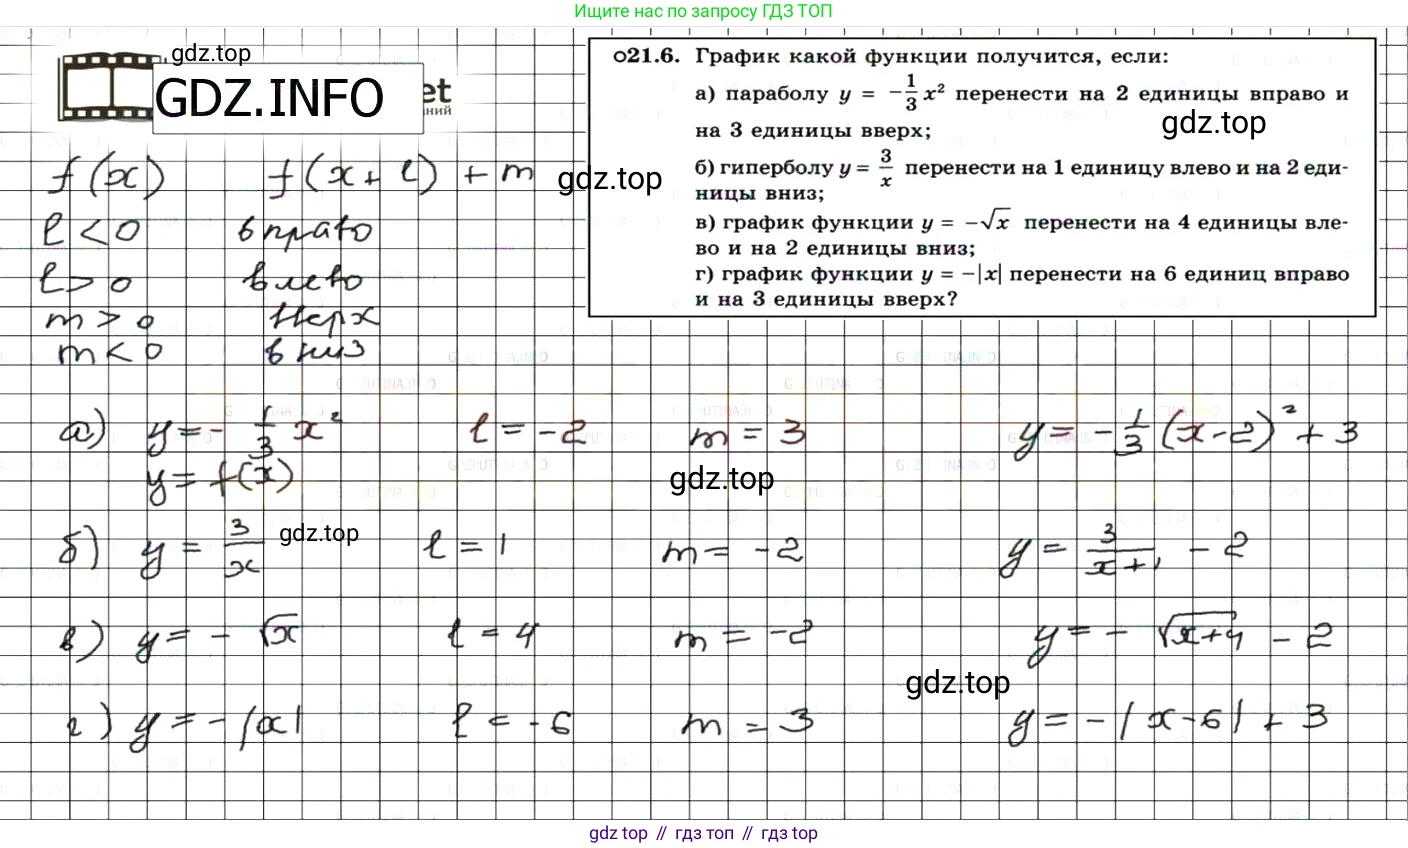 Ищите нас по запросу ГДЗ ТОП
gdz.top
GDZ.INFO
et
ний
o21.6. График какой функции получится, если:
а) параболу y = -1/3 x² перенести на 2 единицы вправо и
на 3 единицы вверх;
gdz.top
б) гиперболу y = 3/x перенести на 1 единицу влево и на 2 еди-
ницы вниз;
в) график функции y = -√x перенести на 4 единицы вле-
во и на 2 единицы вниз;
г) график функции y = -|x| перенести на 6 единиц вправо
и на 3 единицы вверх?
f(x) f(x+l)+m
gdz.top
l<0 вправо
l>0 влево
m>0 вверх
m<0 вниз
а) y=-1/3 x² l=-2 m=3 y=-1/3(x-2)²+3
y=f(x)
gdz.top
б) y=3/x l=1 m=-2 y=3/(x+1)-2
gdz.top
в) y=-√x l=4 m=-2 y=-√(x+4)-2
gdz.top
г) y=-|x| l=-6 m=3 y=-|x-6|+3
gdz top // гдз топ // гдз top